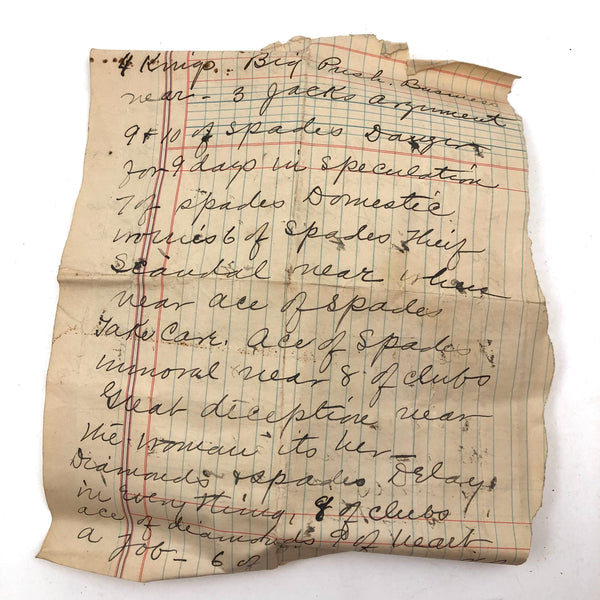 4 Kings.. Big Push. Business
near - 3 Jacks argument
9 + 10 of Spades Danger
for 9 days in speculation
7 of spades Domestic
worries 6 of Spades Theif
Scandal near when
near ace of spades
Take Care. Ace of Spades
immoral near 8 of clubs
Great deception near
the woman its her_
Diamonds + Spades Delay
in everything, 8 of clubs
ace of diamonds 9 of heart
a Job - 6 of